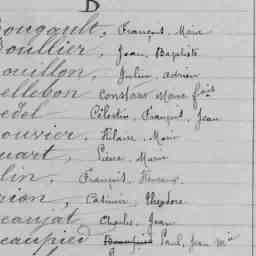 B
ougault, François Marie
oullier, Jean Baptiste
ouillon, Julien Adrien
ellebon Constant Marie fois
edel Célestin François Jean
ouvier, Hilaire Marie
uart, Pierre Marie
lin, François
rion, Casimir Théodore
eaujat Charles Jean
eaupied Paul, Jean Mie